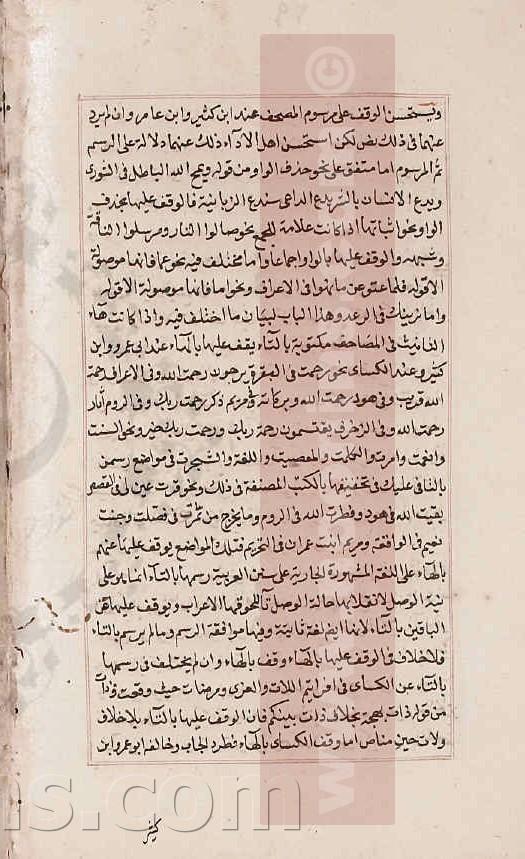 ويستحسن الوقف على مرسوم المصحف عند ابن كثير وابن عامر وان لم يرد
عنهما فى ذلك نص لكن استحسن اهل الأداء ذلك عنهما دلالة على الرسم
ثم المرسوم اما متفق على نحو حذف الواو من قوله ويمح الله الباطل فى الشورى
ويدع الانسان بالشر يدع الداعى سندع الزبانية فالوقف عليها بحذف
الواو ونحو اثباتها اذا كانت علامة للجمع نحو صالوا النار ومرسلوا الناقة
وشبهه والوقف عليها بالواو اجماعا واما مختلف فيه نحو عما فانها موصولة
الا قوله فلما عتو عن ما نهوا فى الاعراف ونحو اما فانها موصولة الا قوله
وان ما نرينك فى الرعد وهذا الباب لبيان ما اختلف فيه واذا كانت هاء
التانيث فى المصاحف مكتوبة بالتاء يقف عليها بالهاء عند ابى عمرو وابن
كثير وعند الكساى نحو رحمت فى البقرة يرجون رحمت الله وفى الاعراف رحمة
الله قريب وفى هود رحمت الله وبركاته فى مريم ذكر رحمت ربك وفى الروم آثار
رحمت الله وفى الزخرف يقسمون رحمة ربك ورحمت ربك خير ونحو السنت
والنعمت وامرت والكلمت والمعصيت واللعنة والشجرت فى مواضع رسمن
بالتا فى عليك فى تحقيقها بالكتب المصنفة فى ذلك ونحو قرت عين لى فى القصص
بقيت الله فى هود وفطرت الله فى الروم وما يخرج من ثمرت فى فصلت وجنت
نعيم فى الواقعة ومريم ابنت عمران فى التحريم فتلك المواضع يوقف عليها عنهم
بالهاء على اللغة المشهورة الجارية على سنن العربية رسمها بالتاء انما هو على
نية الوصل لانقلابها حالة الوصل تاء للحوقها الاعراب ويوقف عليها عن
الباقين بالتاء لانها ايض لغة ثانية وفيها موافقة الرسم وما لم يرسم بالتاء
فلا خلاف فى الوقف عليها بالهاء وقف بالهاء وان لم يختلف فى رسمها
بالتاء عن الكساى فى افرايتم اللات والعزى ومرضات حيث وقعت وذات
من قوله ذات بهجة بخلاف ذات بينكم فان الوقف عليها بالتاء بلا خلاف
ولات حين مناص اما وقف الكساى بالهاء فطرد الباب وخالفه ابو عمرو وابن
كثير